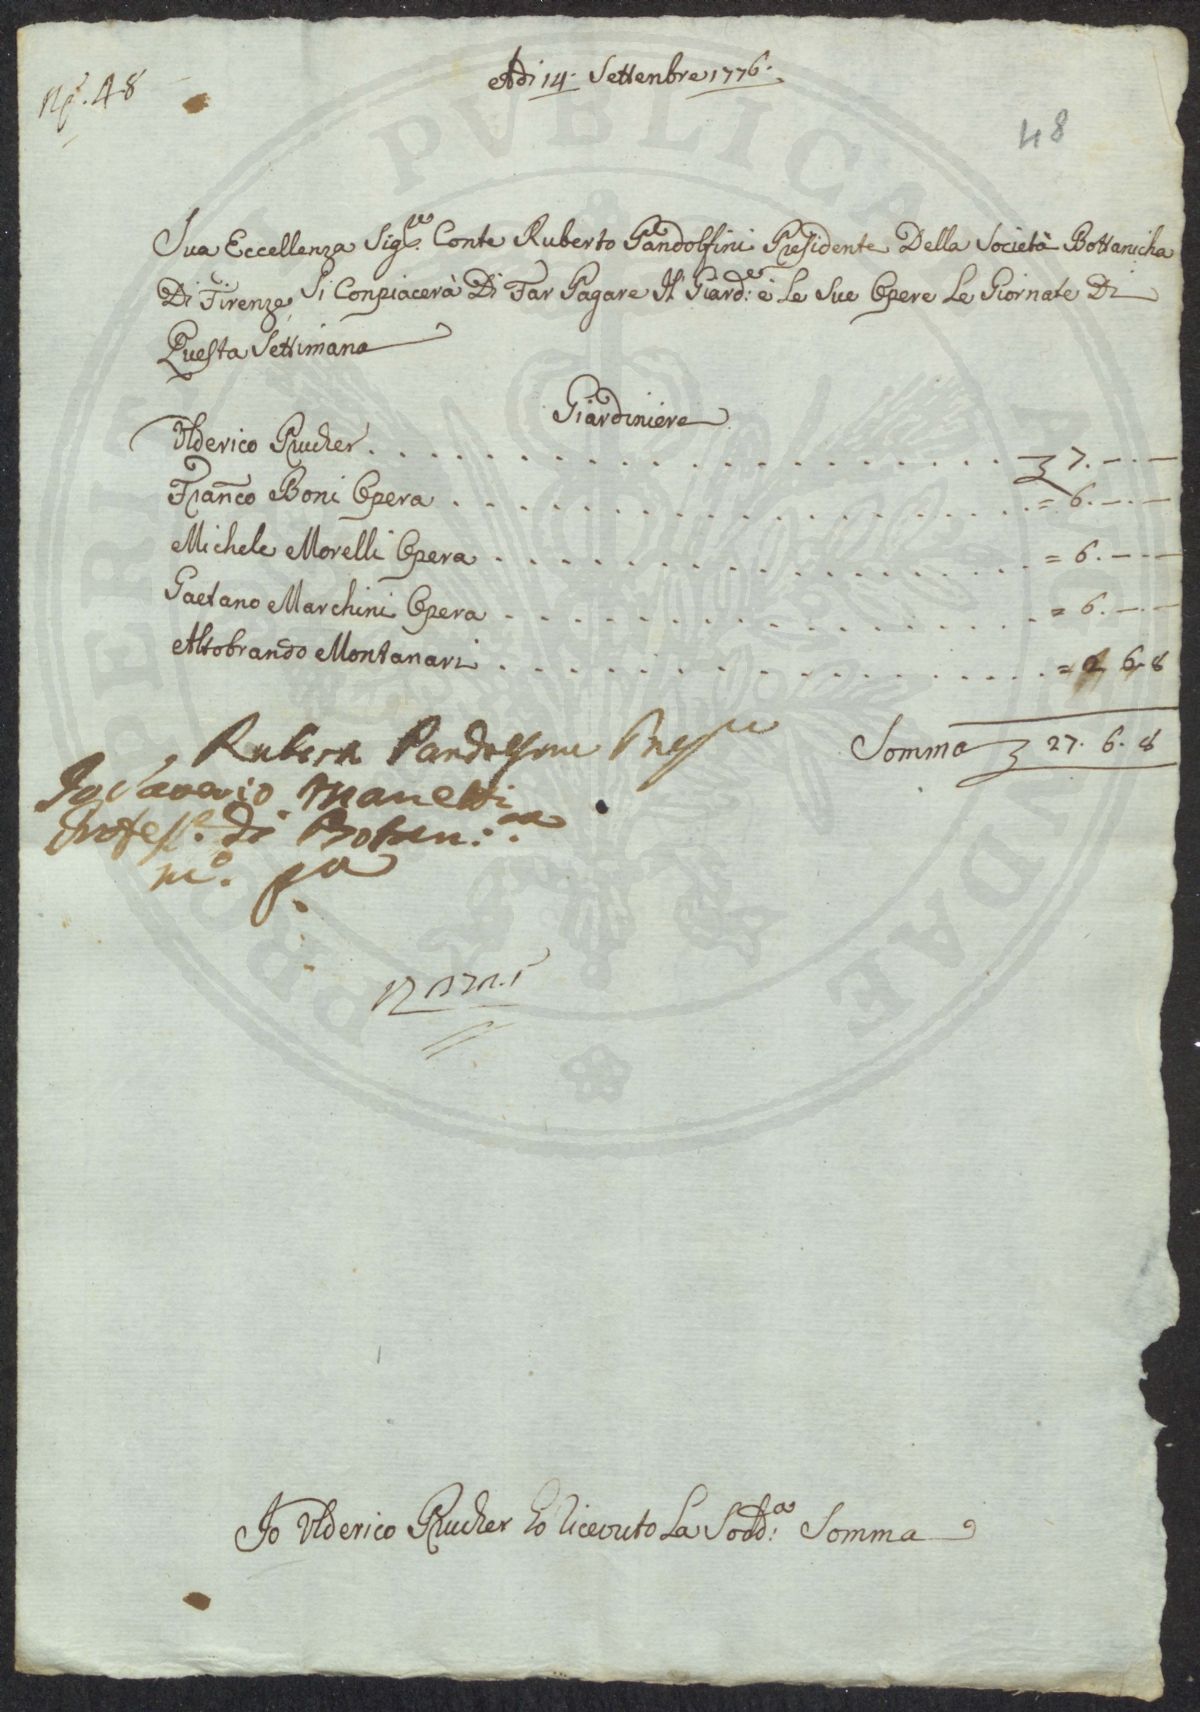 N.º 48
Adi 14. Settenbre 1776.
48
Sua Eccellenza Sig.re Conte Ruberto Pandolfini Presidente Della Società Bottanicha
Di Firenze, Si Conpiacerà Di Far Pagare Il Giard:re è Le Sue Opere Le Giornate Di
Questa Settimana
Giardiniere
Ulderico Prucher . . . 7. — . —
Franco Boni Opera . . . = 6. — . —
Michele Morelli Opera . . . = 6. — . —
Gaetano Marchini Opera . . . = 6. — . —
Altobrando Montanari . . . = 2 6. 8
Somma 27. 6. 8
Ruberto Pandolfini Pres.te
Io Saverio Manetti
Profess.e di Botan:ca
m.o pa
Io Ulderico Prucher ho ricevuto La Sodd:a Somma
PRO PUBLICA